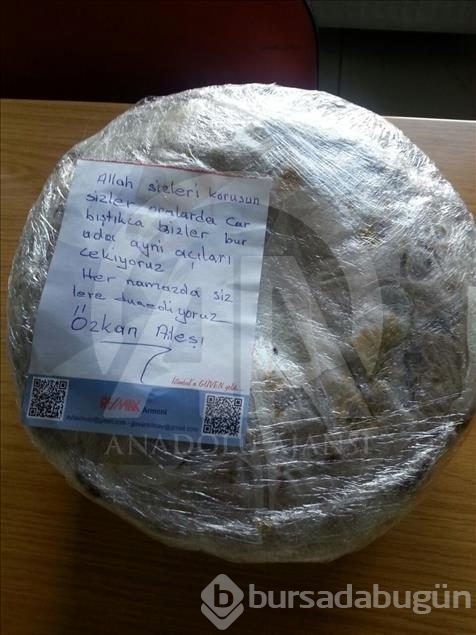 Allah sizleri korusun
sizler oralarda çar
pıştıkça bizler bur
ada ayni açıları
çekiyoruz !
Her namazda siz
lere duaediyoruz
Özkan Ailesi
İstanbul'a GÜVEN geldi...
RE/MAX Armoni
ANADOLU AJANSI
b bursadabugün